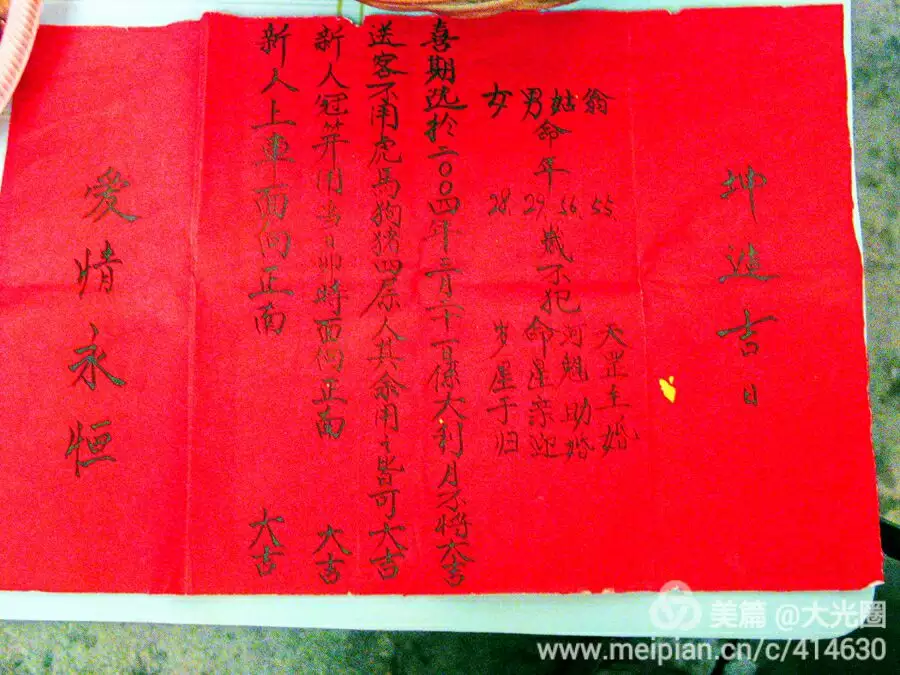 坤造吉日
翁 55 天罡主婚
姑 56 河魁助婚
男命年 29 歲不犯命星亲迎
女 28 岁星于归
喜期选於二〇〇四年二月二十一日係大利月不将大吉
送客不用虎馬狗猪四属人其余用之皆可大吉
新人冠笄用当日卯時面向正南 大吉
新人上車面向正南 大吉
爱情永恒
美篇 @大光圈
www.meipian.cn/c/414630